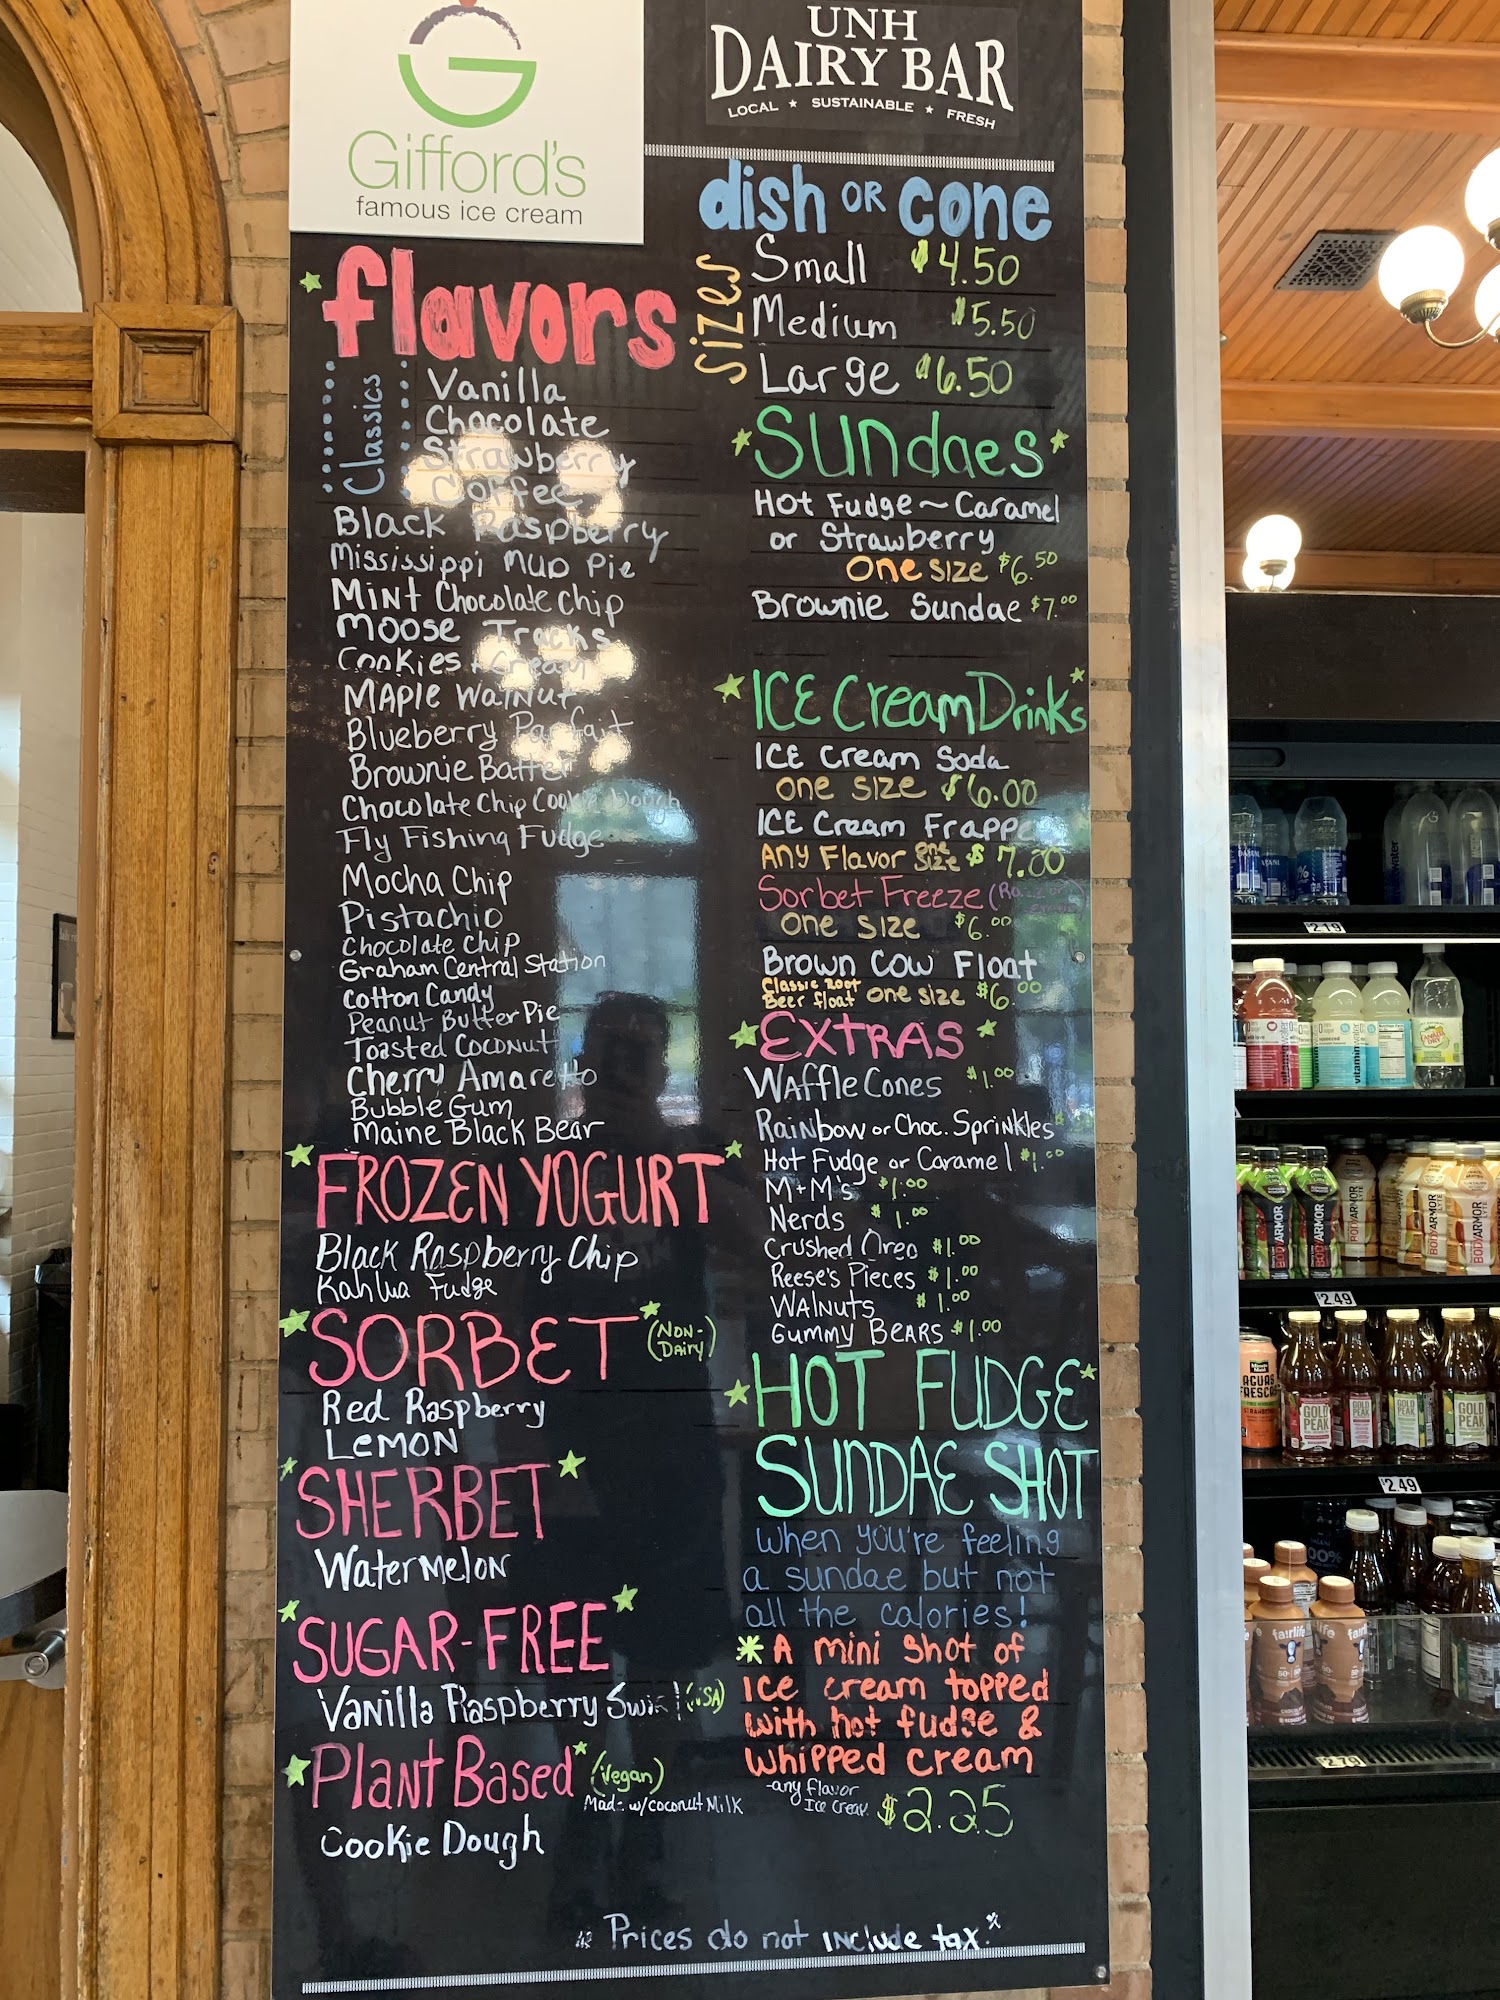 Gifford's
famous ice cream
flavors
Classics
Vanilla
Chocolate
Strawberry
Coffee
Black Raspberry
Mississippi Mud Pie
Mint Chocolate Chip
Moose Tracks
Cookies + Cream
Maple Walnut
Blueberry Parfait
Brownie Batter
Chocolate Chip Cookie Dough
Fly Fishing Fudge
Mocha Chip
Pistachio
Chocolate Chip
Graham Central Station
Cotton Candy
Peanut Butter Pie
Toasted Coconut
Cherry Amaretto
Bubble Gum
Maine Black Bear
FROZEN YOGURT
Black Raspberry Chip
Kahlua Fudge
SORBET (NON-
DAiry)
Red Raspberry
LEMON
SHERBET
Watermelon
SUGAR-FREE
Vanilla Raspberry Swirl (NSA)
Plant Based (Vegan)
Made w/coconut Milk
Cookie Dough
UNH
DAIRY BAR
LOCAL ★ SUSTAINABLE ★ FRESH
dish OR cone
Sizes
Small $4.50
Medium $5.50
Large $6.50
Sundaes
Hot Fudge ~ Caramel
or Strawberry
One size $6.50
Brownie Sundae $7.00
ICE Cream Drinks
ICE Cream Soda
one size $6.00
ICE Cream Frappe
Any Flavor one size $7.00
Sorbet Freeze
One size $6.00
Brown Cow Float
Classic Root
Beer float one size $6.00
EXTRAS
Waffle Cones $1.00
Rainbow or Choc. Sprinkles
Hot Fudge or Caramel $1.00
M+M's $1.00
Nerds $1.00
Crushed Oreo $1.00
Reese's Pieces $1.00
Walnuts $1.00
Gummy Bears $1.00
HOT FUDGE
SUNDAE SHOT
When you're feeling
a sundae but not
all the calories!
* A mini shot of
Ice cream topped
with hot fudge &
whipped cream
-any flavor
Ice Cream $2.25
* Prices do not include tax.*
$2.19
$2.49
$2.49
$2.79
DASANI
vitaminwater
CANADA DRY
BODYARMOR
BODYARMOR
BODYARMOR
AGUAS
FRESCAS
GOLD
PEAK
GOLD
PEAK
GOLD
PEAK
GOLD
PEAK
fairlife
fairlife